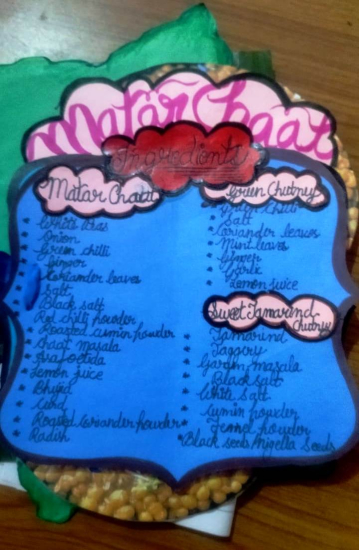 Matar Chaat
Ingredients
Matar Chaat
White Peas
Onion
Green chilli
Ginger
Coriander leaves
Salt
Black salt
Red chilli powder
Roasted cumin powder
Chaat masala
Asafoetida
Lemon juice
Bhujia
Curd
Roasted Coriander powder
Radish
Green Chutney
Green Chilli
Salt
Coriander leaves
Mint leaves
Ginger
Garlic
Lemon juice
Sweet Tamarind
Chutney
Tamarind
Jaggery
Garam masala
Black salt
White Salt
Cumin powder
Fennel powder
Black seeds Nigella Seeds